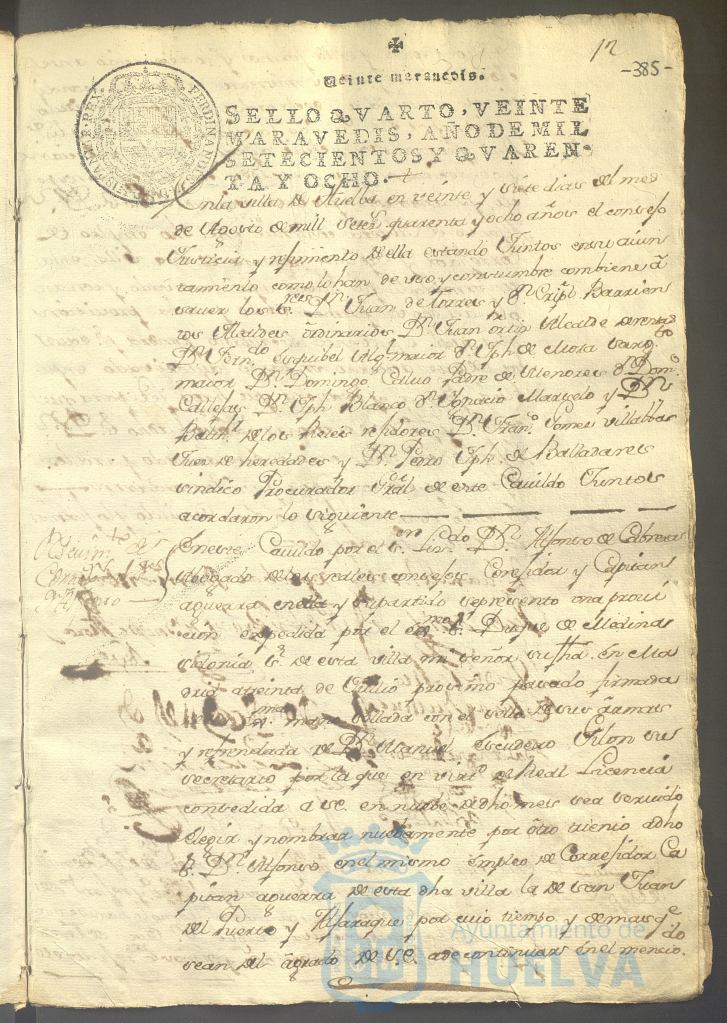 12
-385-
Veinte maravedis.
SELLO QVARTO, VEINTE
MARAVEDIS, AÑO DE MIL
SETECIENTOS Y QVAREN-
TA Y OCHO.
FERDINANDUS
En la villa de Huelba en veinte y siete dias del mes
de Agosto de mill setezs quarenta y ocho años el consejo
Justicia y rejimiento de ella estando Juntos en su aiun
tamiento como lo han de uso y constumbre combiene à
sauer los ss.res Dn Juan de Torres y Dn Cripl Barrien
tos Alcaldes ordinarios Dn Juan ortiz Alcalde
Dn Fern.do esquibel Alg.l maior Dn Jph de Mora
maior Dn Domingo Caluo Padre de Menores Dn Dom.o
Callejas Dn Jph Blanco Dn Ygnacio Marzelo y Dn
de los Reies rejidores Dn Fran.co Gomes Villalbas
Jues de heredades y Dn Pedro Jph de Balladares
sindico Procurador Gral de este Cauildo Juntos
acordaron lo siguiente
En este Cauildo por el s. Liz.do Dn Alfonso de Cabreras
Abogado de los reales consejos Correjidor y Capitan
aguerra en ella y su partido se presento una provi
cion expedida por el ex.mo s. Duque de Medina
sidonia s. de esta villa mi señor su fha en Ma
drid a treinta de Julio proximo pasado firmada
de su mano sellada con el sello de sus armas
y refrendada de Dn Manuel Escudero Gilon su
secretario por la que en virt.d de Real Licencia
consedida a S.E. en nuebe de dho mes sea seruido
elegir y nombrar nuebamente por otro trienio a dho
s. Dn Alfonso en el mismo empleo de Correjidor Ca
pitan aguerra de esta dha villa la de San Juan
del Puerto y Alfaraque por cuio tiempo y demas q.e
sean del agrado de S.E. a de continuar en el mencio.do
Ayuntamiento de
HUELVA